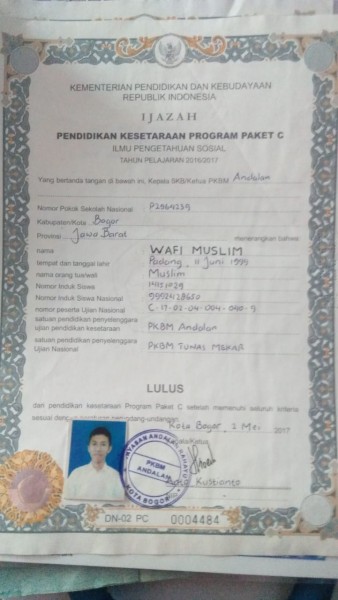 KEMENTERIAN PENDIDIKAN DAN KEBUDAYAAN
REPUBLIK INDONESIA
IJAZAH
PENDIDIKAN KESETARAAN PROGRAM PAKET C
ILMU PENGETAHUAN SOSIAL
TAHUN PELAJARAN 2016/2017
Yang bertanda tangan di bawah ini, Kepala SKB/Ketua PKBM Andalan
Nomor Pokok Sekolah Nasional P2964239
Kabupaten/Kota Bogor
Provinsi Jawa Barat menerangkan bahwa:
nama WAFI MUSLIM
tempat dan tanggal lahir Padang, 11 Juni 1999
nama orang tua/wali Muslim
Nomor Induk Siswa
Nomor Induk Siswa Nasional
nomor peserta Ujian Nasional
satuan pendidikan penyelenggara PKBM Andalan
ujian pendidikan kesetaraan
satuan pendidikan penyelenggara PKBM TUNAS MEKAR
Ujian Nasional
LULUS
dari pendidikan kesetaraan Program Paket C setelah memenuhi seluruh kriteria
sesuai dengan perundang-undangan.
Kota Bogor, 2 Mei 2017
Kustianto
YAYASAN ANDALAN
PKBM
ANDALAN
KOTA BOGOR
DN-02 PC 0004484